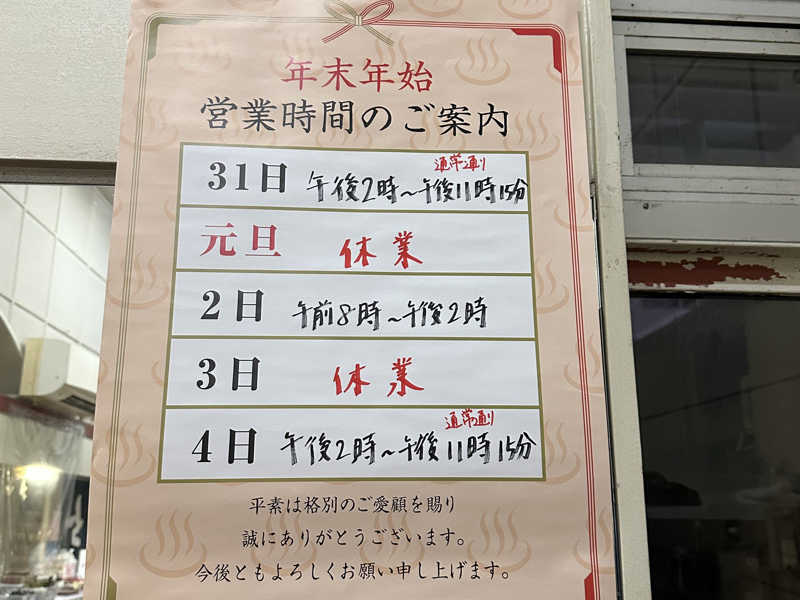 年末年始
営業時間のご案内
通常通り
31日 午後2時～午後11時15分
元旦 休業
2日 午前8時～午後2時
3日 休業
通常通り
4日 午後2時～午後11時15分
平素は格別のご愛顧を賜り
誠にありがとうございます。
今後ともよろしくお願い申し上げます。